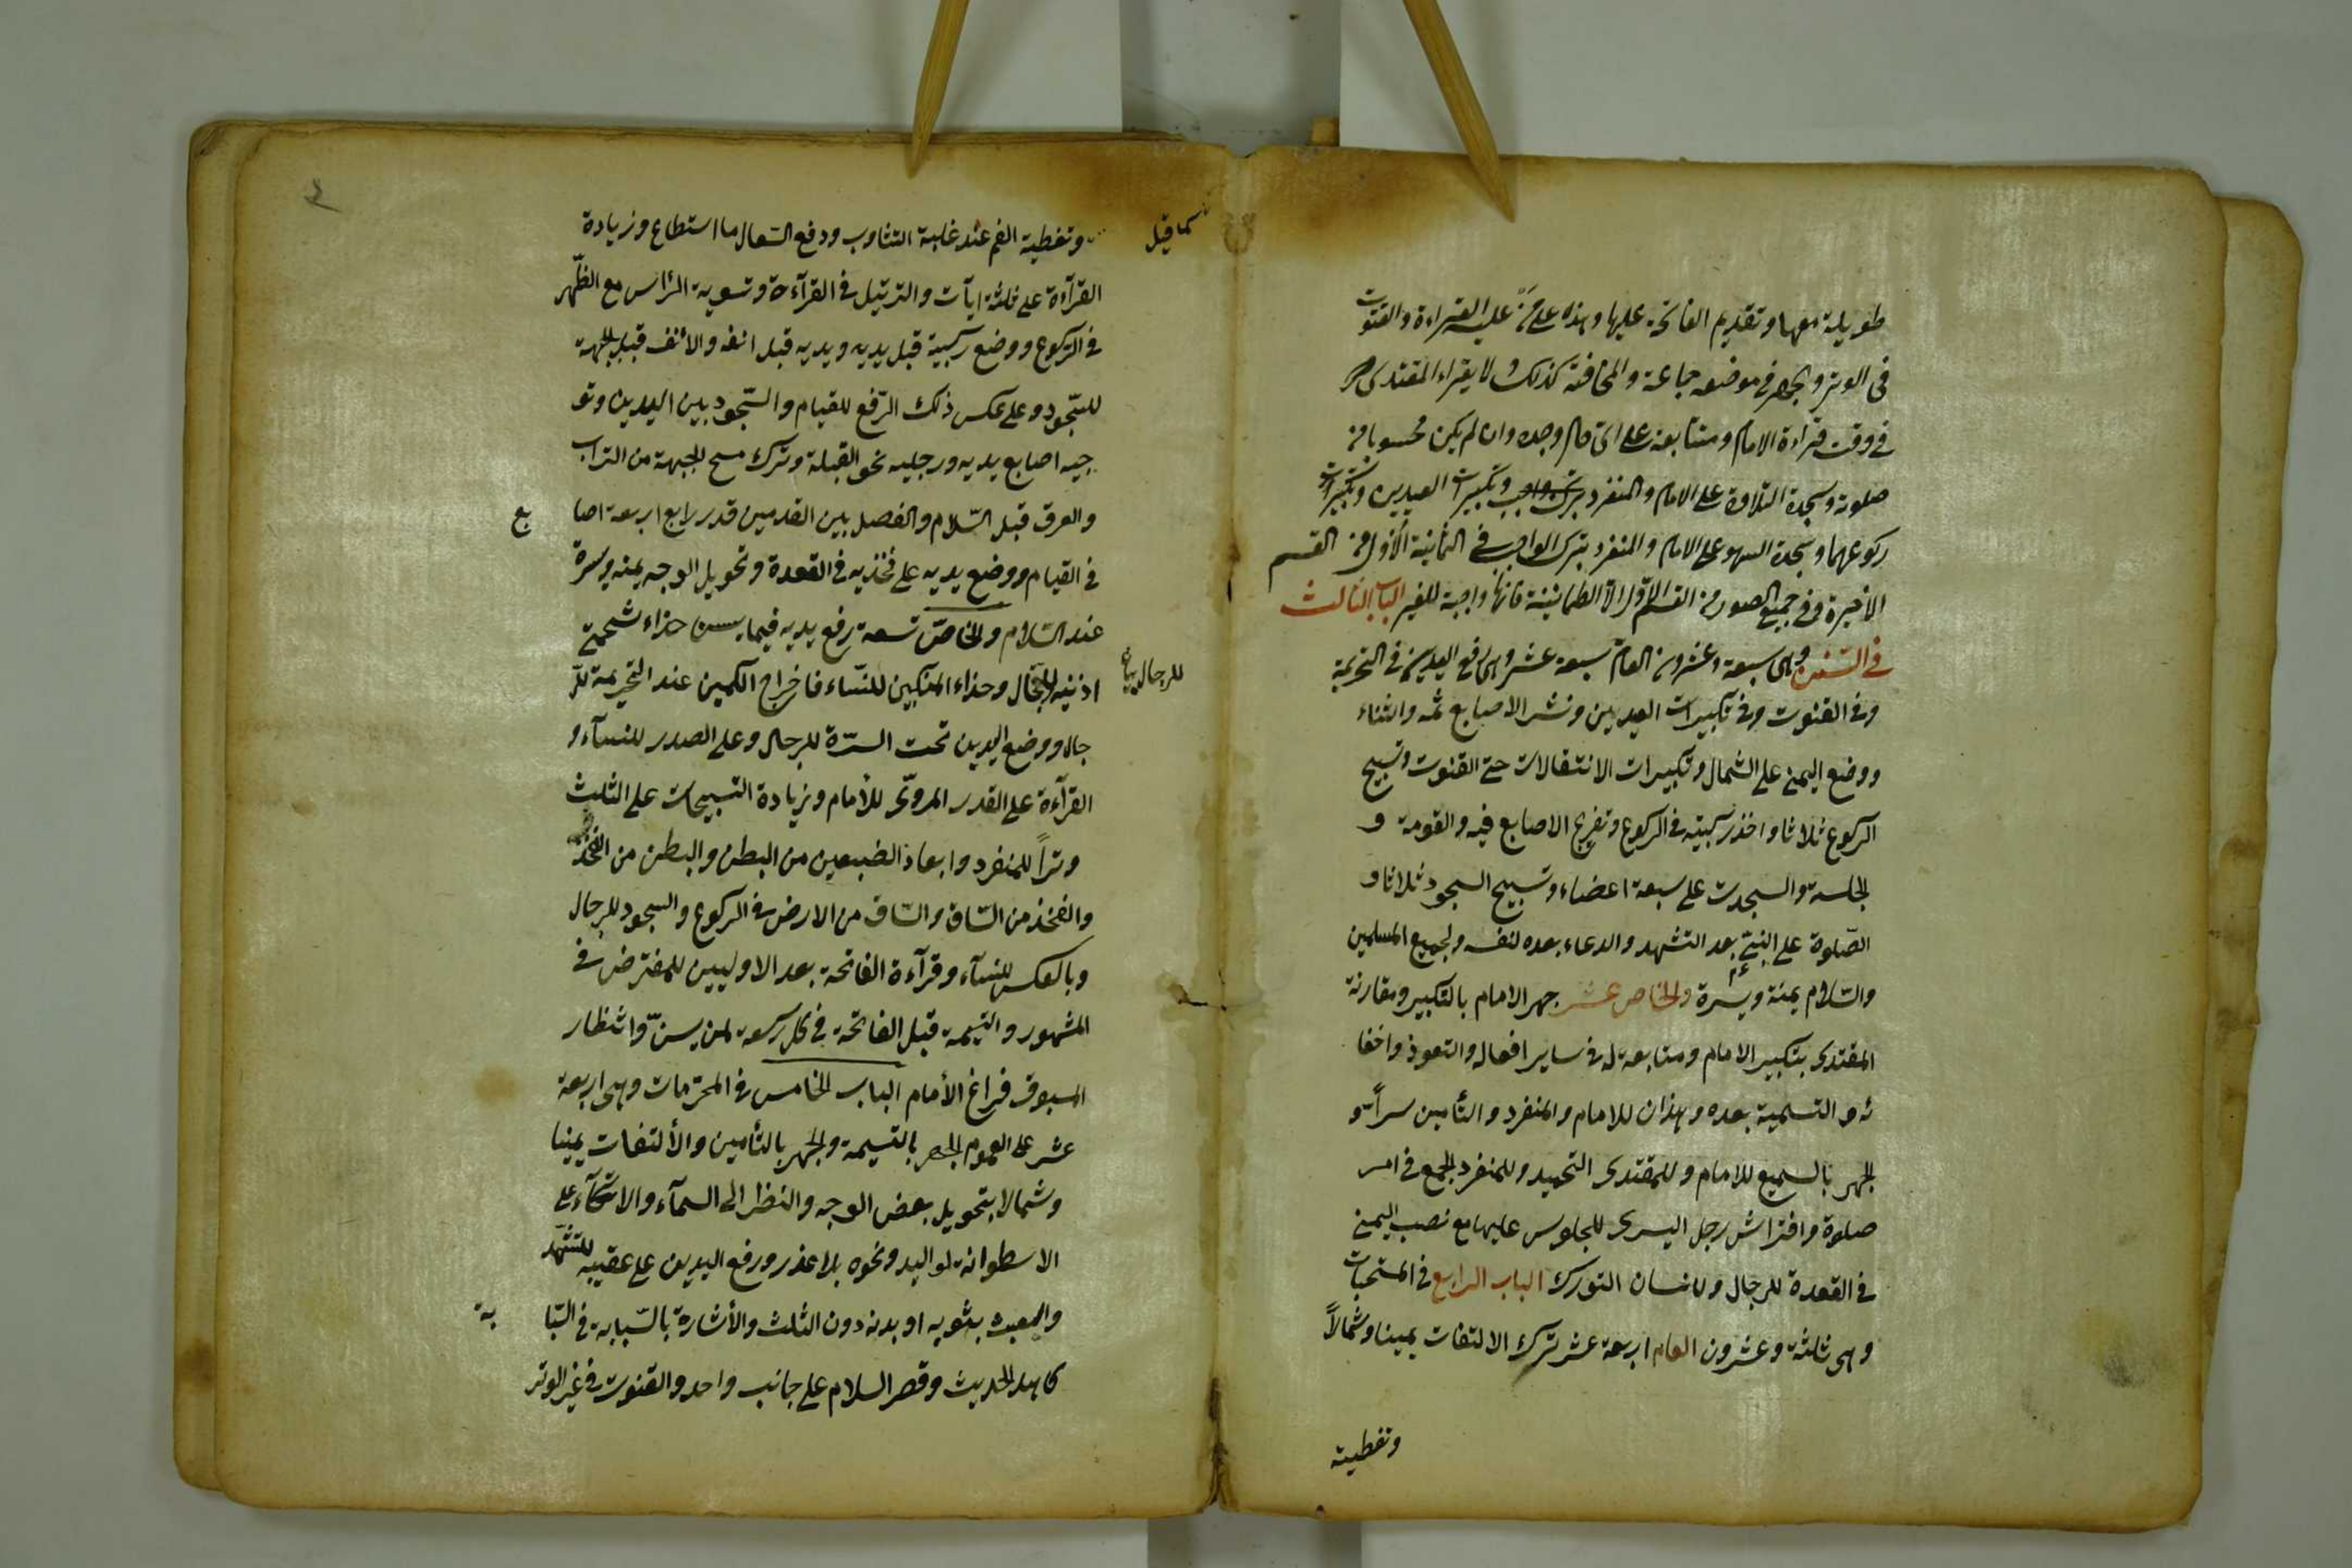 طويلة معها وتقديم الفاتحة عليها وهذه على من عليه القراءة والقنوت
فى الوتر والجهر فى موضعه جماعة والمخافتة كذلك ولا يقراء المقتدى
فى وقت قراءة الامام ومتابعته على اى حال وجده وان لم يكن محسوبا من
صلوته وسجدة التلاوة على الامام والمنفرد وتكبيرات العيدين وتكبيرات
ركوعهما وسجدة السهو على الامام والمنفرد بترك الواجب فى الثمانية الأول من القسم
الأخيرة وفى جميع الصور من القسم الأول الا الطمانينة فانها واجبة للغير الباب الثالث
فى السنن وهى سبعة وعشرون العام سبعة عشر وهى رفع اليدين فى التحريمة
وفى القنوت وفى تكبيرات العيدين ونشر الاصابع ثمه والثناء
ووضع اليمنى على الشمال وتكبيرات الانتقالات حتى القنوت وتسبيح
الركوع ثلاثا واخذ ركبتيه فى الركوع وتفريج الاصابع فيه والقومة و
الجلسة والسجدت على سبعة اعضاء وتسبيح السجود ثلاثا و
الصلوة على النبى عم بعد التشهد والدعاء بعده لنفسه ولجميع المسلمين
والسّلام يمنة ويسرة والخاص عشر جهر الامام بالتكبير ومقارنة
المقتدى بتكبير الامام ومتابعة له فى ساير افعاله والتعوذ واخفا
ئه والتسمية بعده وهذان للامام والمنفرد والتأمين سراً و
الجهر بالسميع للامام وللمقتدى التحميد وللمنفرد الجمع فى امر
صلوة وافتراش رجل اليسرى للجلوس عليها مع نصب اليمنى
فى القعدة للرجال التورك الباب الرابع فى المستحبات
وهى ثلثة وعشرون العام اربعة عشر ترك الالتفات يمينا وشمالاً
وتغطية
كما قيل
وتغطية الفم عند غلبة التثاوب ودفع السّعال ما استطاع وزيادة
القرآءة على ثلثة ايآت والترتيل فى القرآءة وتسوية الرّأس مع الظّهر
فى الرّكوع ووضع ركبتيه قبل يديه ويديه قبل انفه والانف قبل الجبهة
للسّجود وعلى عكس ذلك الرّفع للقيام والسّجود بين اليدين وتو
جيه اصابع يديه ورجليه نحو القبلة وترك مسح الجبهة من التراب
والعرق قبل السّلام والفصل بين القدمين قدر رابع اربعة اصا
بع
فى القيام ووضع يديه على فخذيه فى القعدة وتحويل الوجه يمنة ويسرة
عند السّلام والخاصّ تسعة رفع يديه فيما يسن حذاء شحمتى
اذنيه للرّجال وحذاء المنكبين للنّساء فاخراج الكمين عند التحريمة للرّ
للرجال
جال ووضع اليدين تحت السّرة للرجال وعلى الصدر للنسآء و
القرآءة على القدر المروىّ للأمام وزيادة التسبيحات على الثلث
وتراً للمنفرد وابعاد الضبعين من البطن والبطن من الفخذ
والفخذ من السّاق والسّاق من الارض فى الركوع والسجود للرجال
وبالعكس للنسآء وقرآءة الفاتحة بعد الاوليين للمفترض فى
المشهور والتسمية قبل الفاتحة فى كل ركعة لمن يسنّ وانتظار
المسبوق فراغ الأمام الباب الخامس فى المحرّمات وهى اربعة
عشر على العموم الجهر بالتسمية والجهر بالتأمين والألتفات يمينا
وشمالا بتحويل بعض الوجه والنظر الى السمآء والاتكآء على
الاسطوانة او اليد ونحوه بلا عذر ورفع اليدين على عقيبه للتشهّد
والعبث بثوبه او بدنه دون الثلث والأشارة بالسّبابة فى السّبا
بة
كاهل الحديث وقصر السلام على جانب واحد والقنوت فى غير الوتر